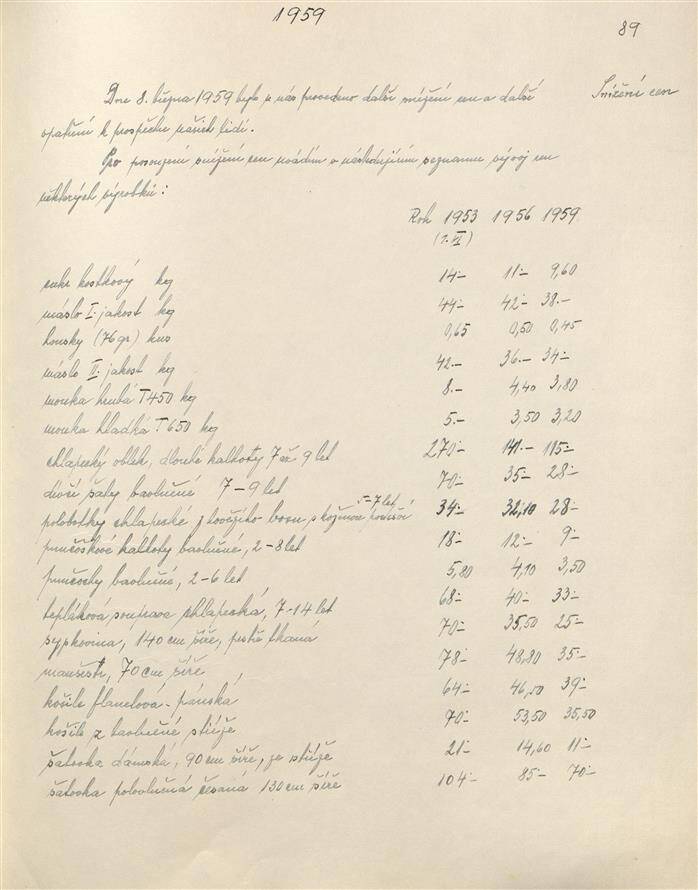 1959
89
Dne 8. března 1959 bylo u nás provedeno další snížení cen a další
Snížení cen
opatření k prospěchu našich lidí.
Pro posouzení snížení cen uvádím v následujícím seznamu vývoj cen
některých výrobků:
Rok 1953 1956 1959
(1. VI)
cukr kostkový kg 14.- 11.- 9,60
máslo I. jakost kg 44.- 42.- 38.-
housky (76 gr) kus 0,65 0,50 0,45
máslo II. jakost kg 42.- 36.- 34.-
mouka hrubá T 450 kg 8.- 4,40 3,80
mouka hladká T 650 kg 5.- 3,50 3,20
chlapecký oblek, dlouhé kalhoty 7 až 9 let 270.- 141.- 115.-
dívčí šaty bavlněné 7-9 let 70.- 35.- 28.-
5-7 let
polobotky chlapecké z hovězího boxu, s koženou podešví 34.- 32,10 28.-
punčochové kalhoty bavlněné, 2-8 let 18.- 12.- 9.-
punčochy bavlněné, 2-6 let 5,80 4,10 3,50
tepláková souprava chlapecká, 7-14 let 68.- 40.- 33.-
sypkovina, 140 cm šíře, pestře tkaná 70.- 35,50 25.-
manšestr, 70 cm šíře 78.- 48,80 35.-
košile flanelová - pánská 64.- 46,50 39.-
košile z bavlněné střiže 70.- 53,50 35,50
šatovka dámská, 90 cm šíře, ze střiže 21.- 14,60 11.-
šatovka polovlněná česaná 130 cm šíře 104.- 85.- 70.-